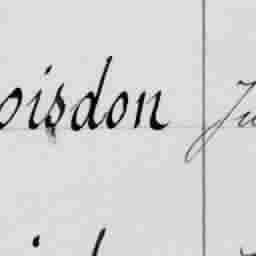 oisdon Ju